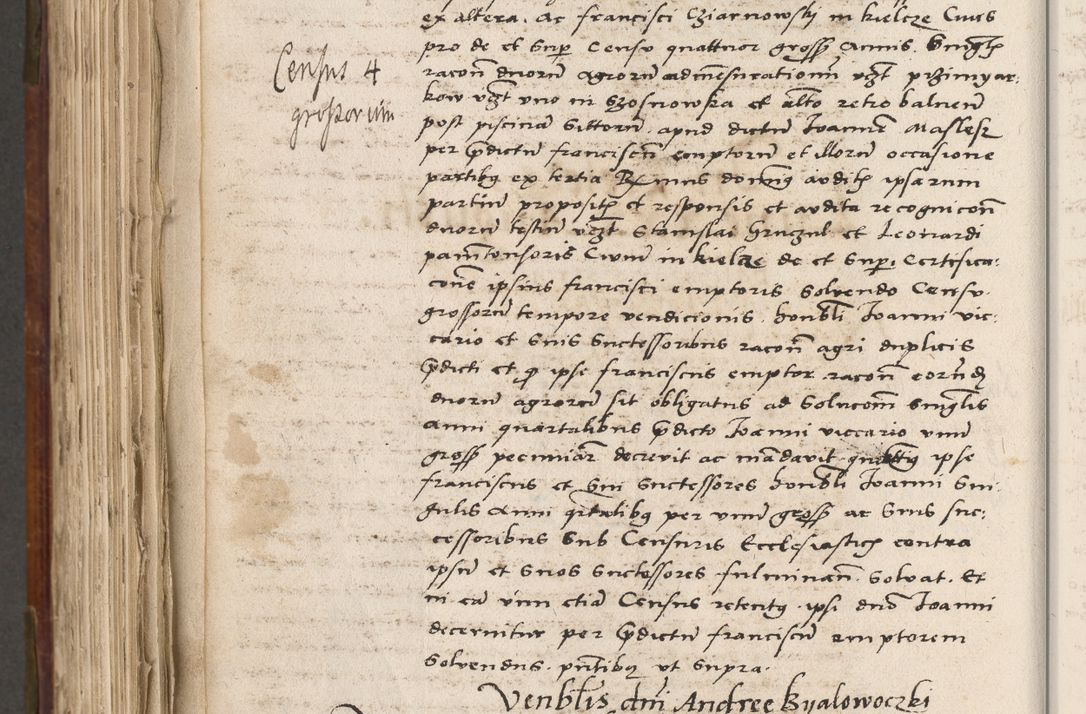 ex altera. Ac francisci Cziarnowskj in kielcze Cives
pro de et Sup Censu quattuor gross Annis. Singlis
Census 4
grossorum
racon duorum agrorum admensurationum vzt przimyar:
kow vzt vno in Szosnowska et alto retro balneum
post piscinam Sittorum. apud dictum Joannem Maslesz
per pdictum franciscum emptorum et illorum occasione
partibq ex tertia Rx mus domnq auditis ipsarum
partium propositis et responsis et audita recognicon
duorum testium vzt Stanislai hruczul et Leonardi
pannitonsoris Civium in kielcze de et Sup. Certifica:
cone ipsius francisci emptoris Solvendo Censu.
grossorum tempore vendicionis. honbli Joanni vic:
cario et Suis Successoribus racon agri duplicis
pdicti et q ipse franciscus emptor racon eorund
duorum agrorum sit obligatus ad Solucom Singlis
Anni quartalibus pdicto Joanni viccario vnum
gross pecuniar decrevit ac mandavit ipse
franciscus et Sui Successores honbli Joanni Sin:
gulis Anni qrtalibq per vnum gross ac Suis suc:
cessoribus Sub Censuris Ecclesiasticis contra
ipsum et Suos Successores fulminan. Solvat. Et
in ea vim etia Census retentq. ipsi dno Joanni
decernitur per pdictum franciscum emptorem
Solvendus. pntibq vt Supra.
Venblis dni Andree Byalowoczki